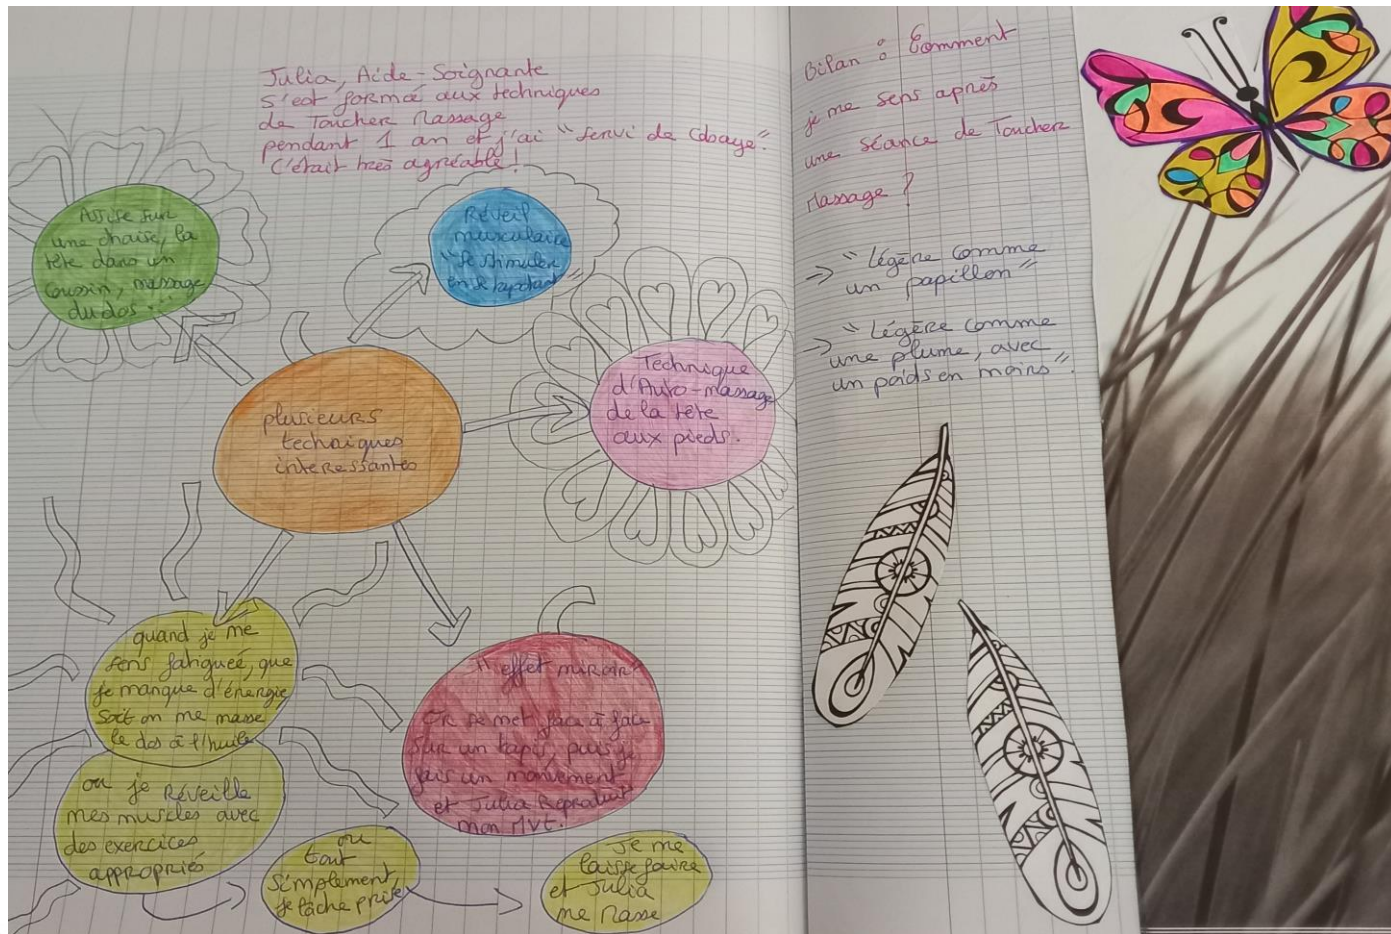 Julia, Aide-Soignante
s'est formé aux techniques
de Toucher Massage
pendant 1 an et j'ai "servi de Cobaye".
C'était très agréable !
Assise sur
une chaise, la
tête dans un
Coussin, massage
du dos.
Réveil
musculaire
"Se stimuler
en se tapotant"
Technique
d'Auto-massage
de la tête
aux pieds.
plusieurs
techniques
intéressantes
quand je me
sens fatiguée, que
je manque d'énergie
soit on me masse
le dos à l'huile
ou je Réveille
mes muscles avec
des exercices
appropriés
ou
tout
simplement,
je lâche prise
Je me
laisse faire
et Julia
me Masse
"effet miroir"
On se met face à face
sur un tapis, puis je
fais un mouvement
et Julia Reproduit
mon MVt.
Bilan : Comment
je me sens après
une séance de Toucher
Massage ?
→ "Légère comme
un papillon"
→ "Légère comme
une plume, avec
un poids en moins".